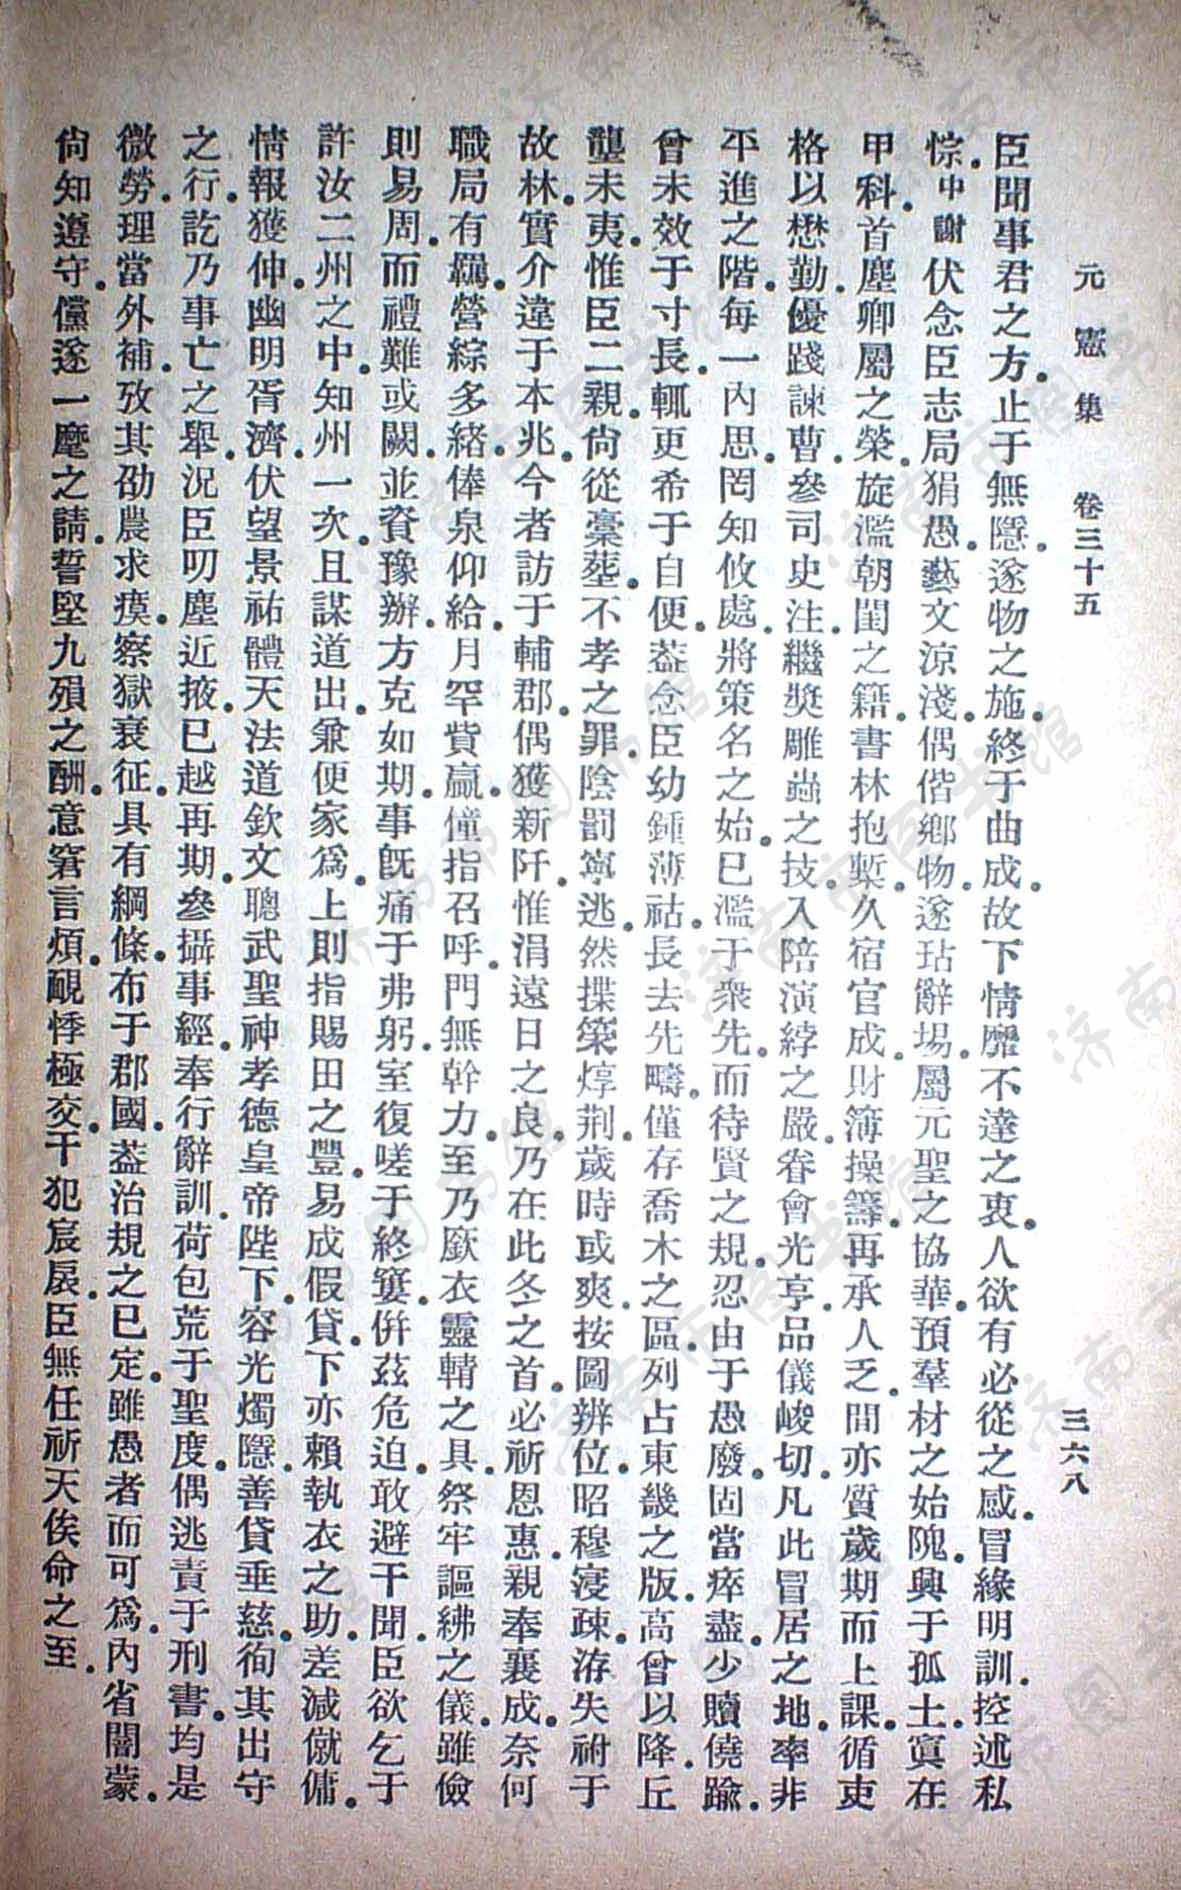 元憲集 卷三十五 三六八
臣聞事君之方。止于無隱。遂物之施。終于曲成。故下情靡不達之衷。人欲有必從之感。冒緣明訓。控述私
悰。中謝伏念臣志局狷愚。藝文涼淺。偶偕鄉物。遂玷辭場。屬元聖之協華。預羣材之始隗。興于孤土。寘在
甲科。首塵卿屬之榮。旋濫朝閨之籍。書林抱槧。久宿官成。財簿操籌。再承人乏。間亦質歲期而上課。循吏
格以懋勤。優踐諫曹。參司史注。繼奬雕蟲之技。入陪演綍之嚴。眷會光亨。品儀峻切。凡此冒居之地。率非
平進之階。每一內思。罔知攸處。將策名之始。已濫于衆先。而待賢之規。忍由于愚廢。固當瘁盡。少贖僥踰。
曾未效于寸長。輒更希于自便。蓋念臣幼鍾薄祜。長去先疇。僅存喬木之區。列占東畿之版。高曾以降。丘
壟未夷。惟臣二親。尙從藁葬。不孝之罪。陰罰寧逃。然揲筞焞荆。歲時或爽。按圖辨位。昭穆寖疎。洊失祔于
故林。實介違于本兆。今者訪于輔郡。偶獲新阡。惟涓遠日之良。乃在此冬之首。必祈恩惠。親奉襄成。奈何
職局有羈。營綜多緒。俸泉仰給。月罕貲贏。僮指召呼。門無幹力。至乃廞衣靈輤之具。祭牢謳紼之儀。雖儉
則易周。而禮難或闕。並資豫辦。方克如期。事旣痛于弗躬。室復嗟于終窶。倂茲危迫。敢避干聞。臣欲乞于
許汝二州之中。知州一次。且謀道出。兼便家爲。上則指賜田之豐。易成假貸。下亦賴執衣之助。差減僦傭。
情報獲伸。幽明胥濟。伏望景祐體天法道欽文聰武聖神孝德皇帝陛下。容光燭隱。善貸垂慈。徇其出守
之行。訖乃事亡之舉。況臣叨塵近掖。已越再期。參攝事經。奉行辭訓。荷包荒于聖度。偶逃責于刑書。均是
微勞。理當外補。攷其劭農求瘼。察獄裒征。具有綱條。布于郡國。蓋治規之已定。雖愚者而可爲。內省闇蒙。
尙知遵守。儻遂一麾之請。誓堅九殞之酬。意窘言煩。靦悸極交。干犯宸扆。臣無任祈天俟命之至。